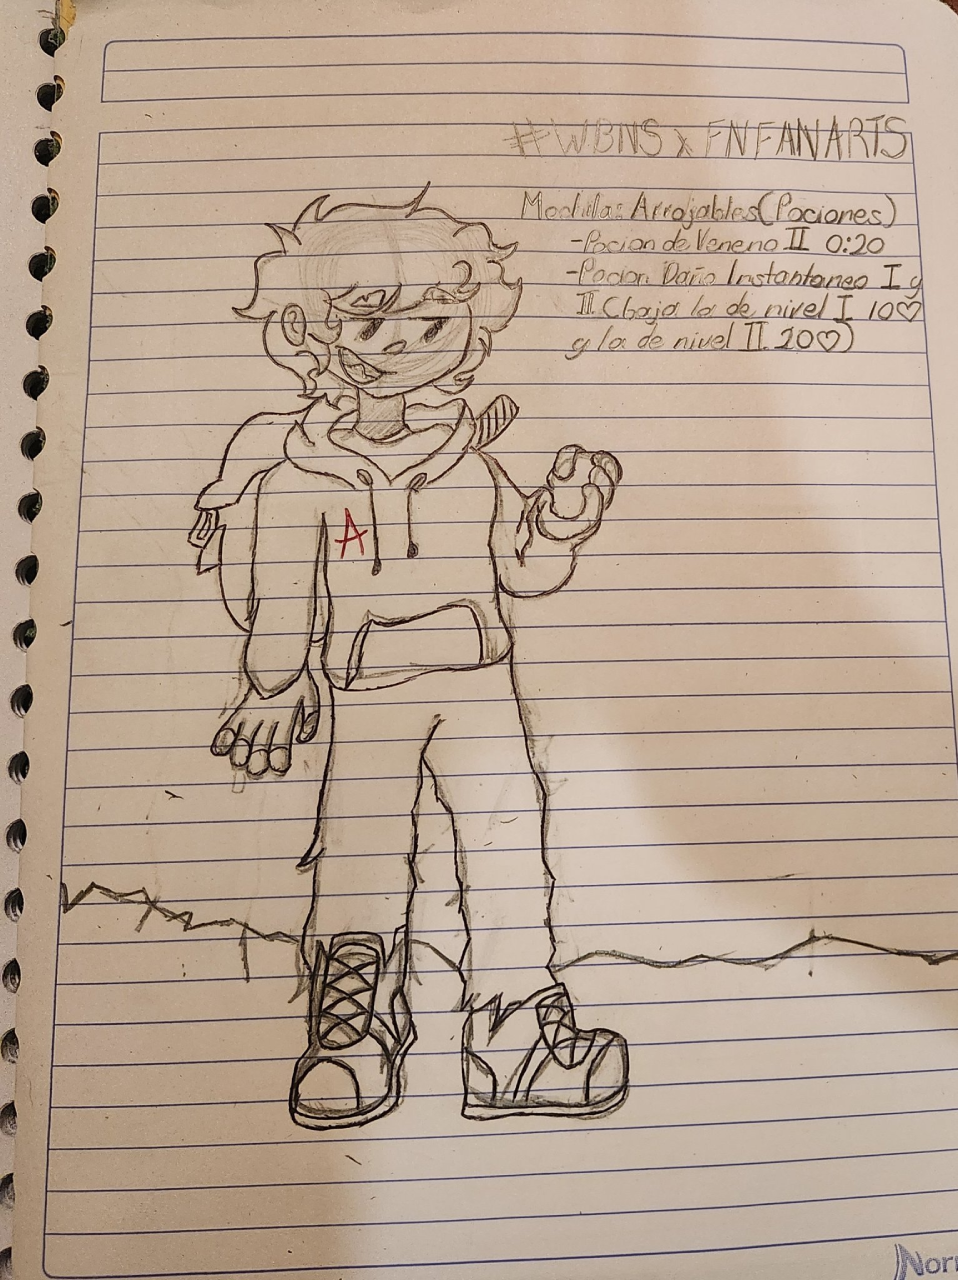 #WBNS x FNFANARTS
Mochilas Arrojables(Pociones)
-Pocion de Veneno II 0:20
-Pocion Daño Instantaneo I y
II (baja la de nivel I 10♡
y la de nivel II 20♡)
A
Norm